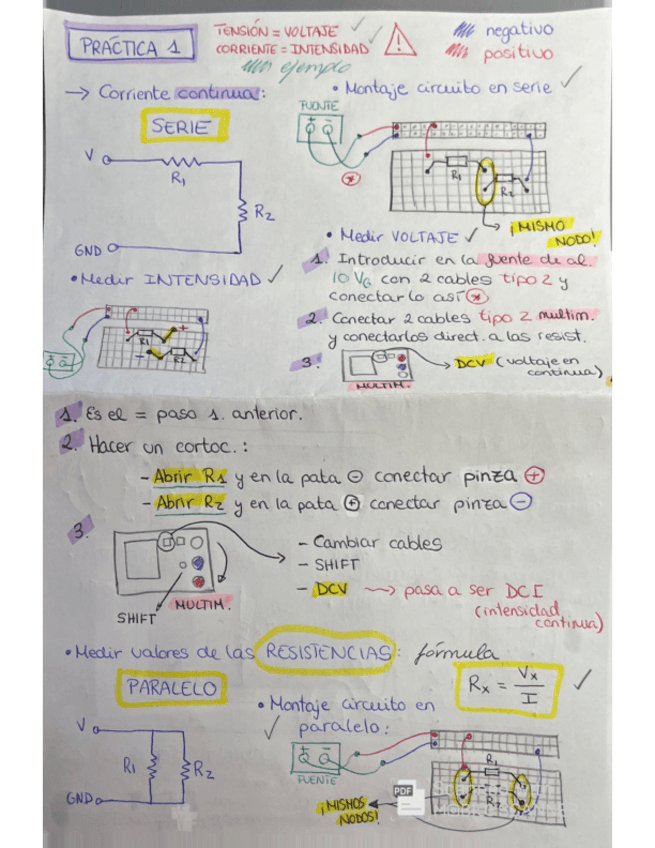 PRÁCTICA 1
TENSIÓN = VOLTAJE
CORRIENTE = INTENSIDAD
ejemplo
negativo
positivo
→ Corriente continua:
SERIE
V
R1
R2
GND
• Montaje circuito en serie ✓
FUENTE
+ -
R1
R2
*
¡MISMO
NODO!
• Medir VOLTAJE ✓
1. Introducir en la fuente de al.
10 VG con 2 cables tipo 2 y
conectarlo así *
2. Conectar 2 cables tipo 2 multim.
y conectarlos direct. a las resist.
3.
MULTIM.
DCV (voltaje en
continua)
• Medir INTENSIDAD ✓
R1
R2
+
-
1. Es el = paso 1. anterior.
2. Hacer un cortoc.:
- Abrir R1 y en la pata ⊖ conectar pinza ⊕
- Abrir R2 y en la pata ⊕ conectar pinza ⊖
3.
SHIFT
MULTIM.
- Cambiar cables
- SHIFT
- DCV → pasa a ser DCI
(intensidad
continua)
• Medir valores de las RESISTENCIAS: fórmula
Rx = Vx / I
PARALELO
V
R1
R2
GND
• Montaje circuito en
paralelo:
FUENTE
+ -
R1
¡MISMOS
NODOS!
PDF